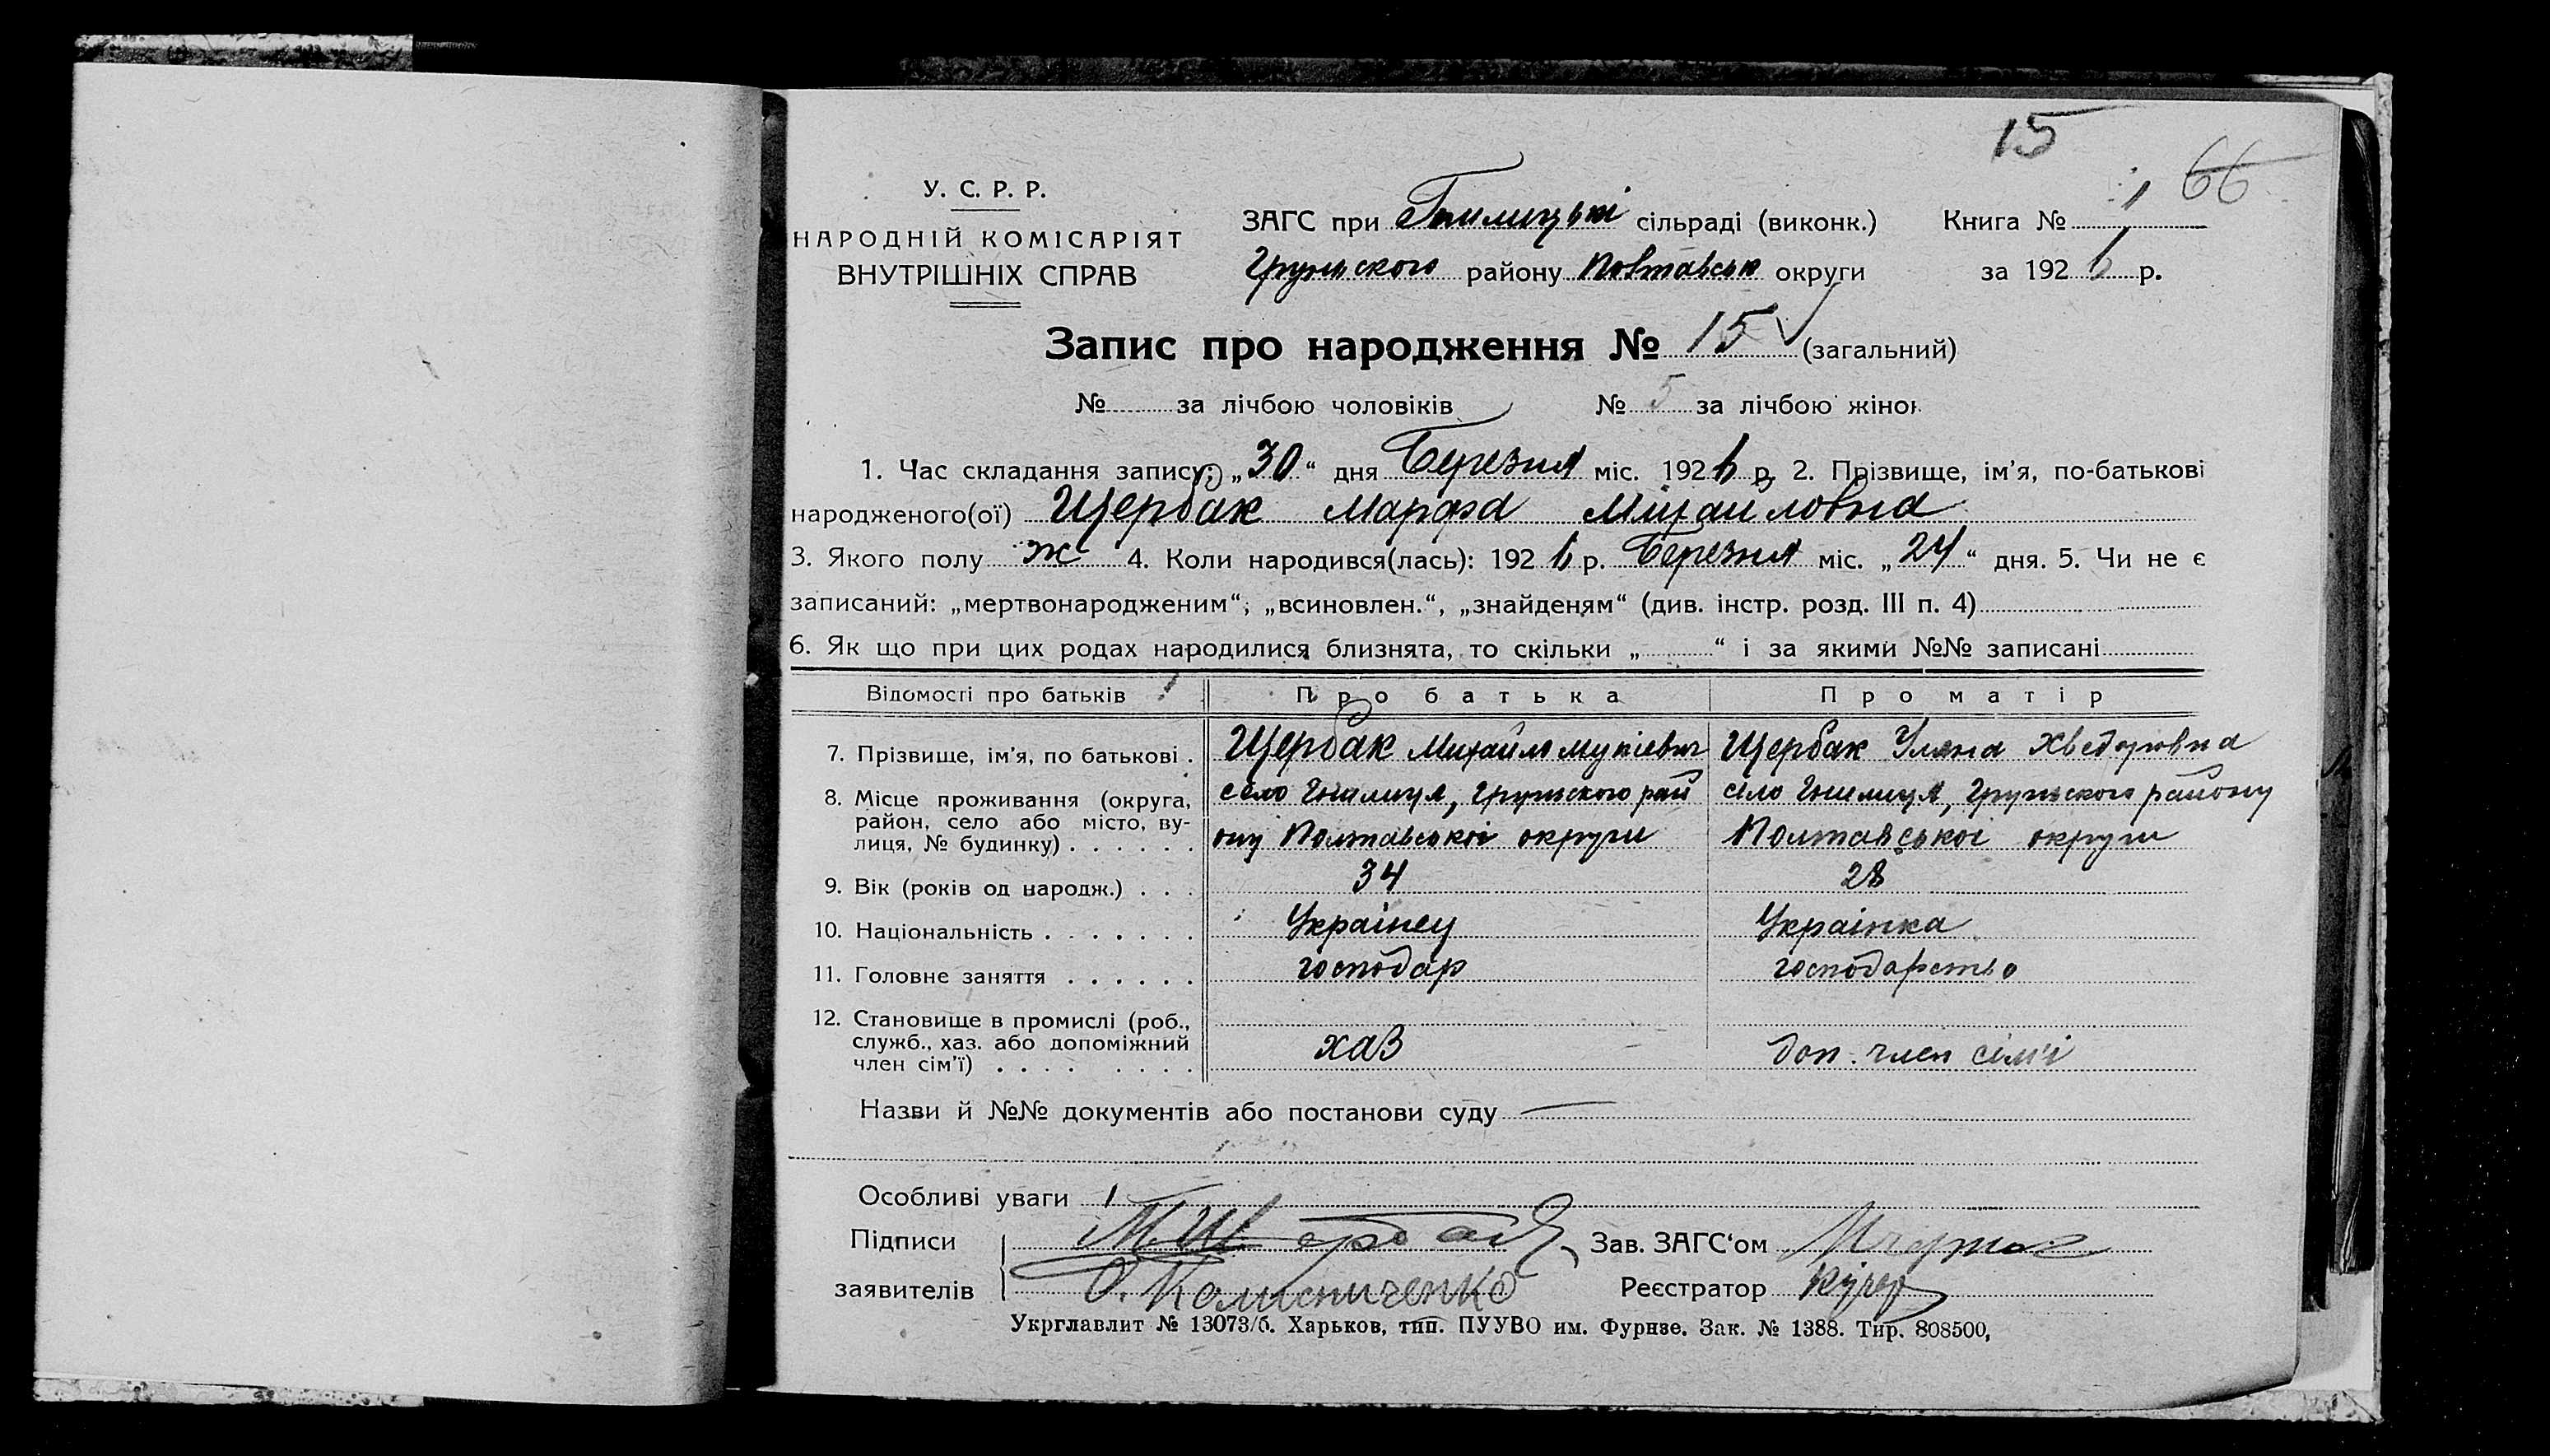 15
66
У. С. Р. Р.
НАРОДНІЙ КОМІСАРІЯТ
ВНУТРІШНІХ СПРАВ
ЗАГС при Гнилицькі сільраді (виконк.) Книга № 1
Груньского району Повтавськ округи за 1926 р.
Запис про народження № 15 (загальний)
№ за лічбою чоловіків № 5 за лічбою жінок
1. Час складання запису: „30“ дня Березня міс. 1926 р. 2. Прізвище, ім’я, по-батькові
народженого(ої) Щербак Марфа Михайловна
3. Якого полу ж 4. Коли народився(лась): 1926 р. Березня міс. „24“ дня. 5. Чи не є
записаний: „мертвонародженим“, „всиновлен.“, „знайденям“ (див. інстр. розд. III п. 4)
6. Як що при цих родах народилися близнята, то скільки „ “ і за якими №№ записані
Відомості про батьків Про батька Про матір
7. Прізвище, ім’я, по батькові . Щербак Михайло Мусіевич Щербак Уляна Хведоровна
8. Місце проживання (округа, село Гнилиця, Груньского рай село Гнилиця, Груньского району
район, село або місто, ву-
лиця, № будинку) . . . . . . ону Полтавськоі округи Полтавськоі округи
9. Вік (років од народж.) . . . 34 28
10. Національність . . . . . . . Украінец Украінка
11. Головне заняття . . . . . . господар господарство
12. Становище в промислі (роб.,
служб., хаз. або допоміжний хаз доп. член сім'і
член сім’ї) . . . . . . . .
Назви й №№ документів або постанови суду —
Особливі уваги
Підписи М Щербак Зав. ЗАГС‘ом
заявителів О. Калиниченко Реєстратор Кучер
Укрглавлит № 13073/б. Харьков, тип. ПУУВО им. Фрунзе. Зак. № 1388. Тир. 808500,